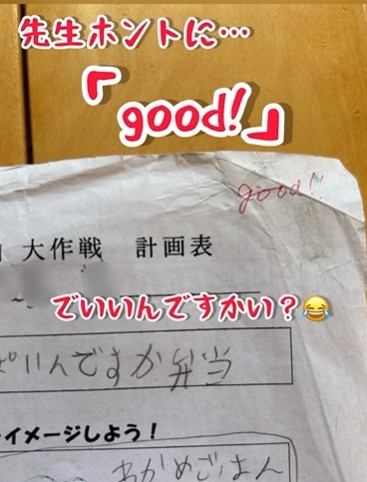 先生ホントに…
「good!」
good!!
大作戦 計画表
でいいんですかい？😂
いんですか弁当
イメージしよう！
わかめごはん